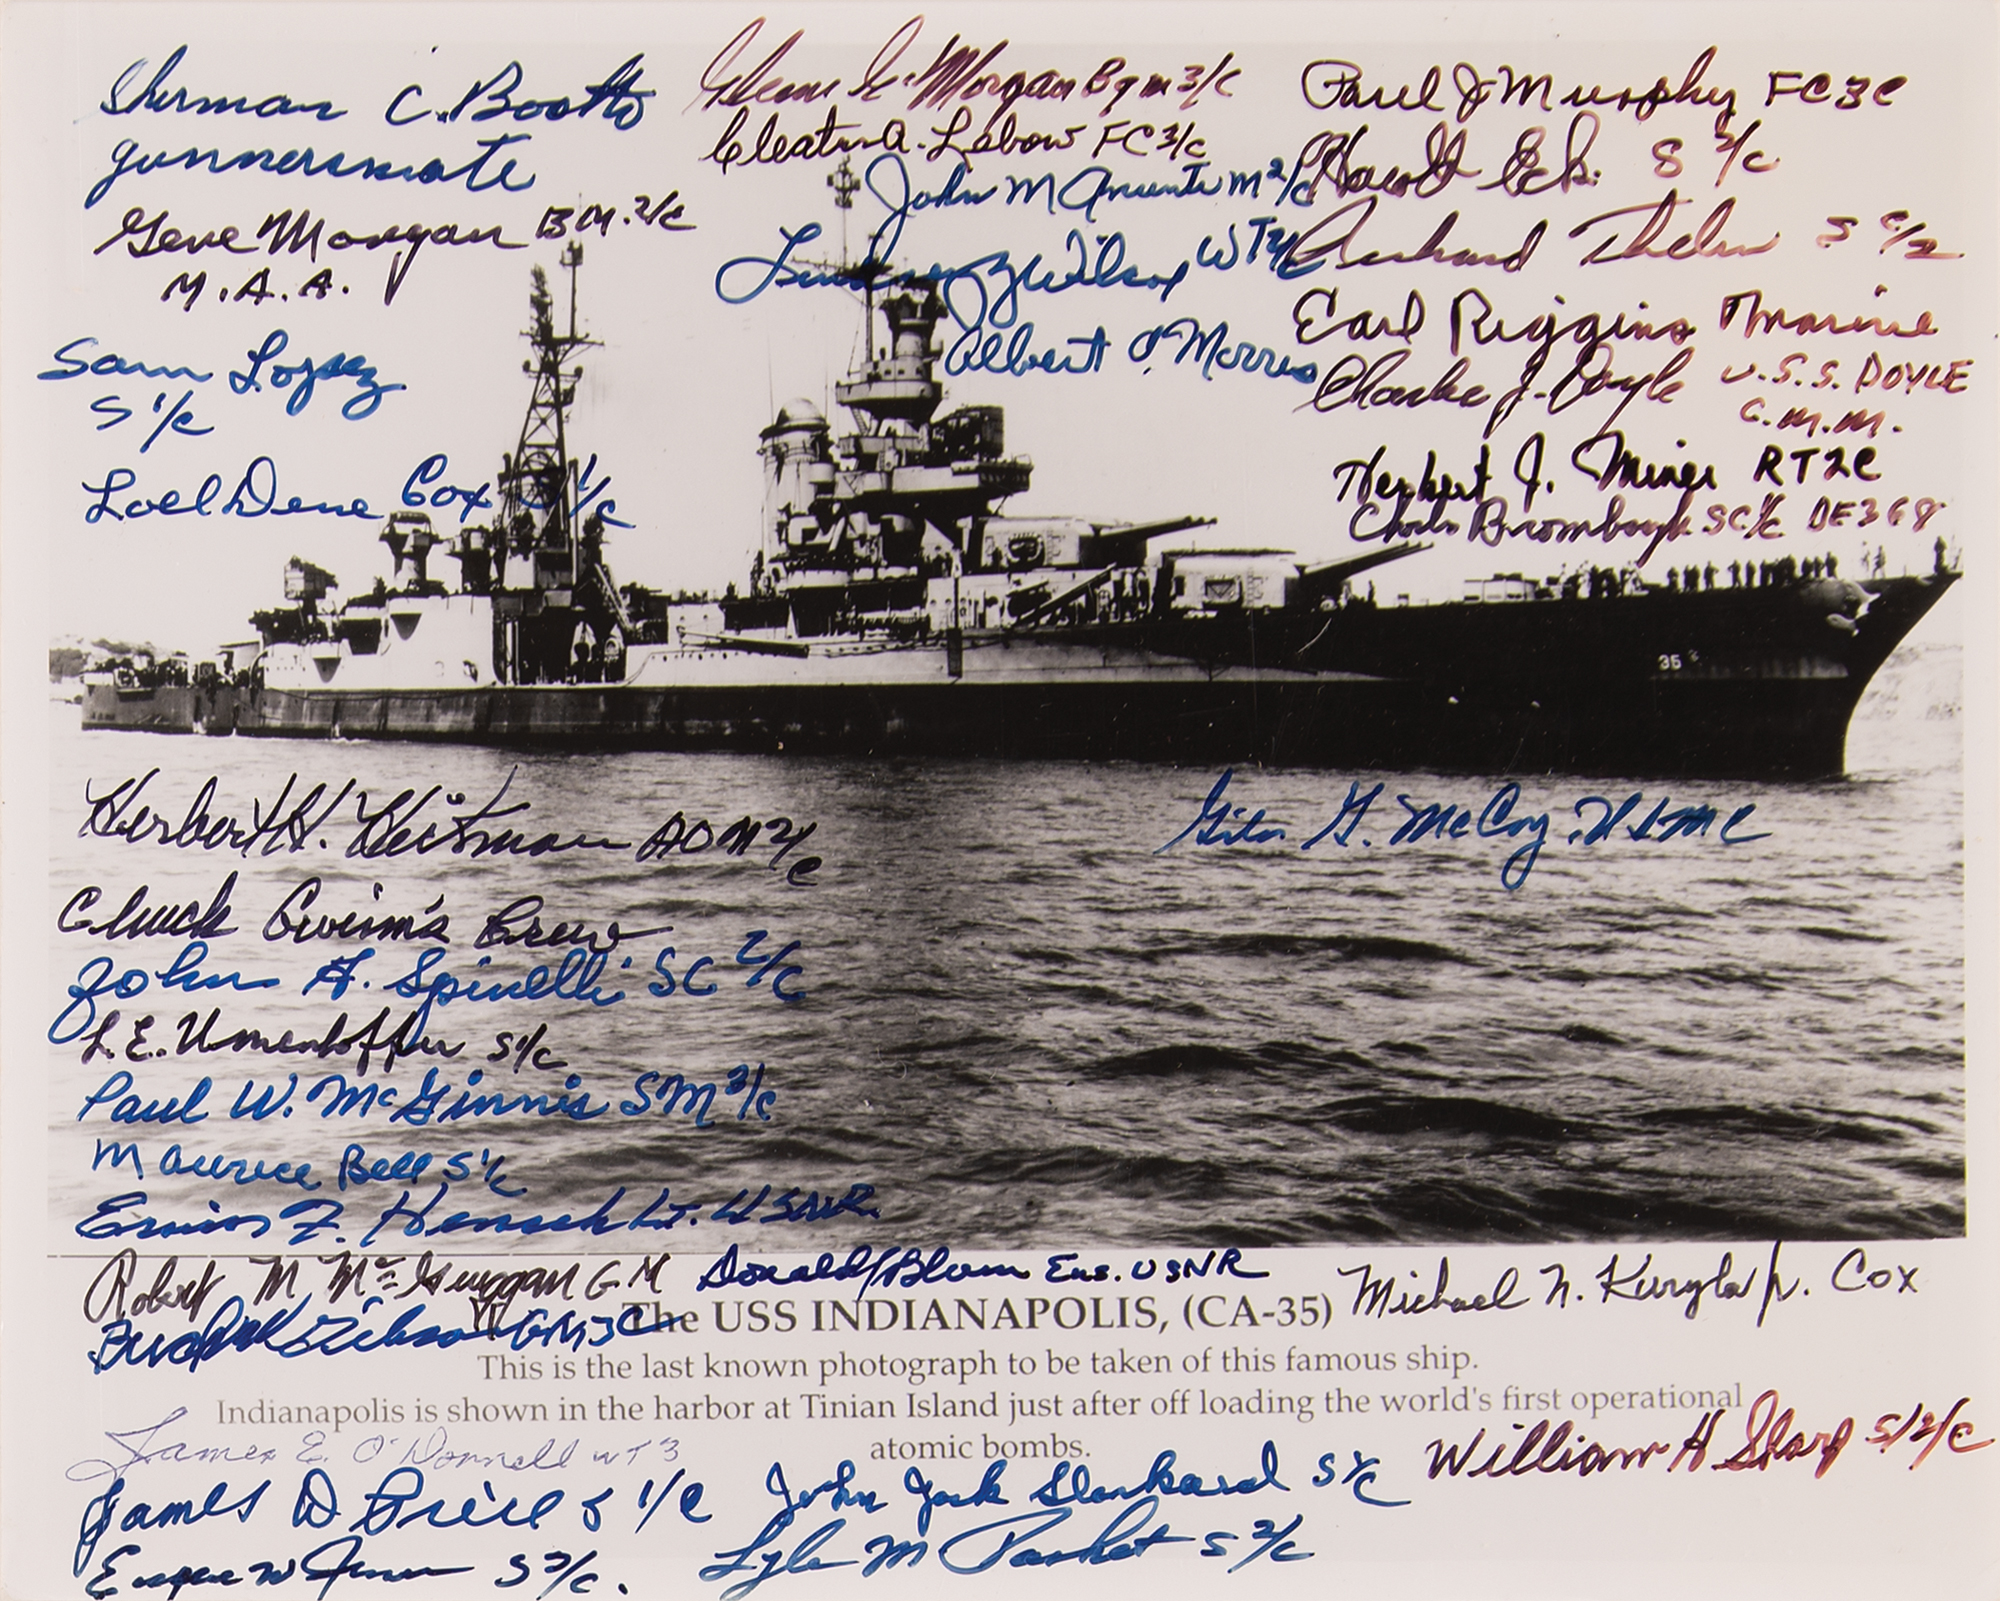 Sherman C. Booth
gunnersmate
Gene Morgan B M. 2/c
M. A. A.
Sam Lopez
S 1/c
Loel Dene Cox S 1/c
Glenn G. Morgan B g m 3/c
Cleatus A. Lebow FC 3/c
John M M 2/c
Lindsey Z Wilcox WT 2/c
Albert O. Morris
Paul J Murphy FC3C
Harold Eck S 2/c
Richard Thelen S c/2
Earl Riggins Marine
Charles J. Doyle U.S.S. DOYLE
C.M.M.
Herbert J. Miner RT2C
Brombaugh SC 1/c DE368
35
Herbert H. Heitman AOM 2/c
Giles G. McCoy. USMC
Chuck Gwinn's Crew
John A. Spinelli SC 2/c
L. E. Umenhoffer S1/c
Paul W. McGinnis SM 3/c
Maurice Bell S1/c
F. Hensch Lt. USNR.
Robert M Mc Guiggan G M
Donald Blum Ens. USNR
Michael N. Kuryla Jr. Cox
Buck Gibson GM3C
The USS INDIANAPOLIS, (CA-35)
This is the last known photograph to be taken of this famous ship.
Indianapolis is shown in the harbor at Tinian Island just after off loading the world's first operational
atomic bombs.
James E. O'Donnell WT3
William H Sharp S/2/C
James D Price S 1/C
John Jack Slankard S 1/c
Eugene W S 2/c.
Lyle M Pasket S 2/c